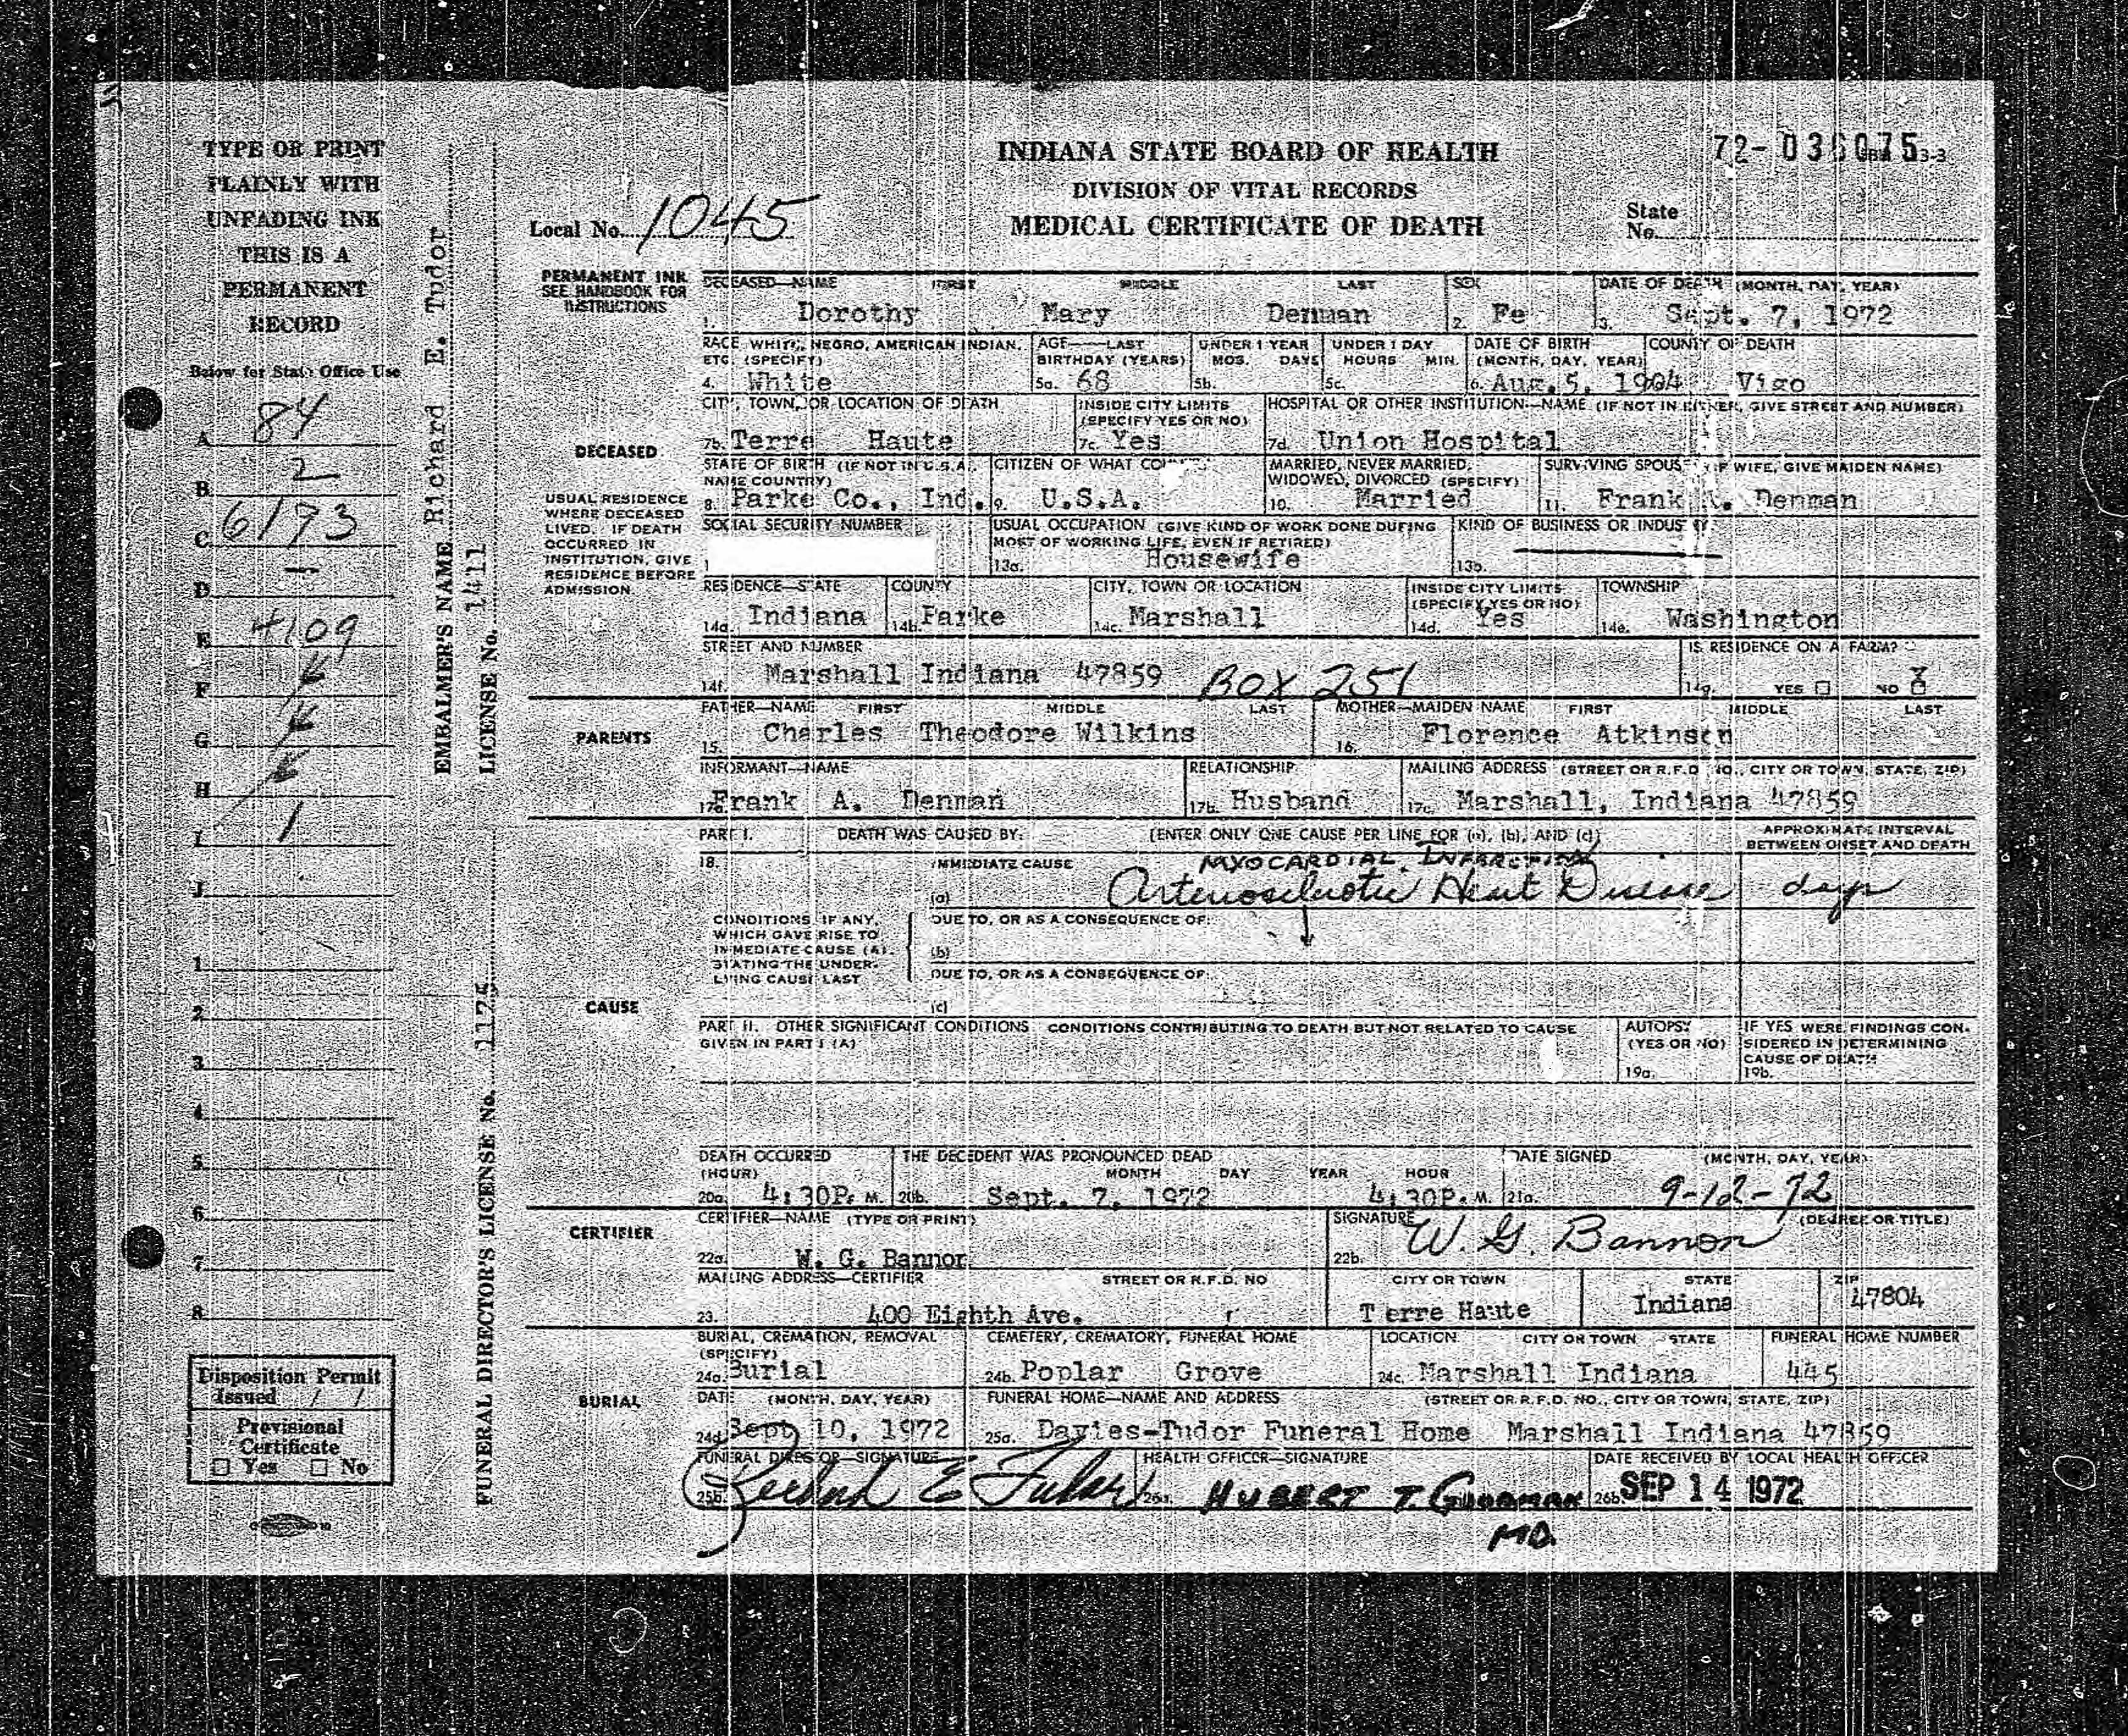 TYPE OR PRINT
PLAINLY WITH
UNFADING INK
THIS IS A
PERMANENT
RECORD
Below for State Office Use
A 84
B 2
C 6173
D —
E 4109
F
G
H
I 1
J
1
2
3
4
5
6
7
8
Disposition Permit
Issued / /
Provisional
Certificate
☐ Yes ☐ No
EMBALMER'S NAME Richard E. Tudor
LICENSE No. 1411
FUNERAL DIRECTOR'S LICENSE No. 1175
INDIANA STATE BOARD OF HEALTH
DIVISION OF VITAL RECORDS
MEDICAL CERTIFICATE OF DEATH
72-036075
Local No. 1045
State
No.
PERMANENT INK
SEE HANDBOOK FOR
INSTRUCTIONS
DECEASED—NAME FIRST MIDDLE LAST SEX DATE OF DEATH (MONTH, DAY, YEAR)
1. Dorothy Mary Denman 2. Fe 3. Sept. 7, 1972
RACE WHITE, NEGRO, AMERICAN INDIAN, AGE—LAST UNDER 1 YEAR UNDER 1 DAY DATE OF BIRTH COUNTY OF DEATH
ETC. (SPECIFY) BIRTHDAY (YEARS) MOS. DAYS HOURS MIN. (MONTH, DAY, YEAR)
4. White 5a. 68 5b. 5c. 6. Aug. 5, 1904 Vigo
CITY, TOWN, OR LOCATION OF DEATH INSIDE CITY LIMITS HOSPITAL OR OTHER INSTITUTION—NAME (IF NOT IN EITHER, GIVE STREET AND NUMBER)
(SPECIFY YES OR NO)
7b. Terre Haute 7c. Yes 7d. Union Hospital
DECEASED
STATE OF BIRTH (IF NOT IN U.S.A., CITIZEN OF WHAT MARRIED, NEVER MARRIED, SURVIVING SPOUSE (IF WIFE, GIVE MAIDEN NAME)
NAME COUNTRY) WIDOWED, DIVORCED (SPECIFY)
8. Parke Co., Ind. 9. U.S.A. 10. Married 11. Frank A. Denman
USUAL RESIDENCE
WHERE DECEASED
LIVED. IF DEATH
OCCURRED IN
INSTITUTION, GIVE
RESIDENCE BEFORE
ADMISSION.
SOCIAL SECURITY NUMBER USUAL OCCUPATION (GIVE KIND OF WORK DONE DURING KIND OF BUSINESS OR INDUSTRY
MOST OF WORKING LIFE, EVEN IF RETIRED)
13a. Housewife 13b.
RESIDENCE—STATE COUNTY CITY, TOWN OR LOCATION INSIDE CITY LIMITS TOWNSHIP
(SPECIFY YES OR NO)
14a. Indiana 14b. Parke 14c. Marshall 14d. Yes 14e. Washington
STREET AND NUMBER IS RESIDENCE ON A FARM?
14f. Marshall Indiana 47859 BOX 251 14g. YES ☐ NO ☒
PARENTS
FATHER—NAME FIRST MIDDLE LAST MOTHER—MAIDEN NAME FIRST MIDDLE LAST
15. Charles Theodore Wilkins 16. Florence Atkinson
INFORMANT—NAME RELATIONSHIP MAILING ADDRESS (STREET OR R.F.D. NO., CITY OR TOWN, STATE, ZIP)
17a. Frank A. Denman 17b. Husband 17c. Marshall, Indiana 47859
PART I. DEATH WAS CAUSED BY: (ENTER ONLY ONE CAUSE PER LINE FOR (a), (b), AND (c)) APPROXIMATE INTERVAL
BETWEEN ONSET AND DEATH
18. IMMEDIATE CAUSE MYOCARDIAL INFARCTION
(a) Arteriosclerotic Heart Disease days
CONDITIONS, IF ANY,
WHICH GAVE RISE TO
IMMEDIATE CAUSE (A).
STATING THE UNDER-
LYING CAUSE LAST
DUE TO, OR AS A CONSEQUENCE OF:
(b)
DUE TO, OR AS A CONSEQUENCE OF:
(c)
CAUSE
PART II. OTHER SIGNIFICANT CONDITIONS CONDITIONS CONTRIBUTING TO DEATH BUT NOT RELATED TO CAUSE
GIVEN IN PART I (A)
AUTOPSY
(YES OR NO)
19a.
IF YES WERE FINDINGS CON-
SIDERED IN DETERMINING
CAUSE OF DEATH
19b.
DEATH OCCURRED THE DECEDENT WAS PRONOUNCED DEAD DATE SIGNED (MONTH, DAY, YEAR)
(HOUR) MONTH DAY YEAR HOUR
20a. 4:30P. M. 20b. Sept. 7, 1972 4:30P. M. 21a. 9-12-72
CERTIFIER
CERTIFIER—NAME (TYPE OR PRINT) SIGNATURE (DEGREE OR TITLE)
22a. W. G. Bannon 22b. W. G. Bannon
MAILING ADDRESS—CERTIFIER STREET OR R.F.D. NO CITY OR TOWN STATE ZIP
23. 400 Eighth Ave. Terre Haute Indiana 47804
BURIAL, CREMATION, REMOVAL CEMETERY, CREMATORY, FUNERAL HOME LOCATION CITY OR TOWN STATE FUNERAL HOME NUMBER
(SPECIFY)
24a. Burial 24b. Poplar Grove 24c. Marshall Indiana 445
BURIAL
DATE (MONTH, DAY, YEAR) FUNERAL HOME—NAME AND ADDRESS (STREET OR R.F.D. NO., CITY OR TOWN, STATE, ZIP)
24d. Sept 10, 1972 25a. Davies-Tudor Funeral Home Marshall Indiana 47859
FUNERAL DIRECTOR—SIGNATURE HEALTH OFFICER—SIGNATURE DATE RECEIVED BY LOCAL HEALTH OFFICER
25b. Richard E Tudor 26a. HUBERT T. GOODMAN 26b. SEP 14 1972
MD.